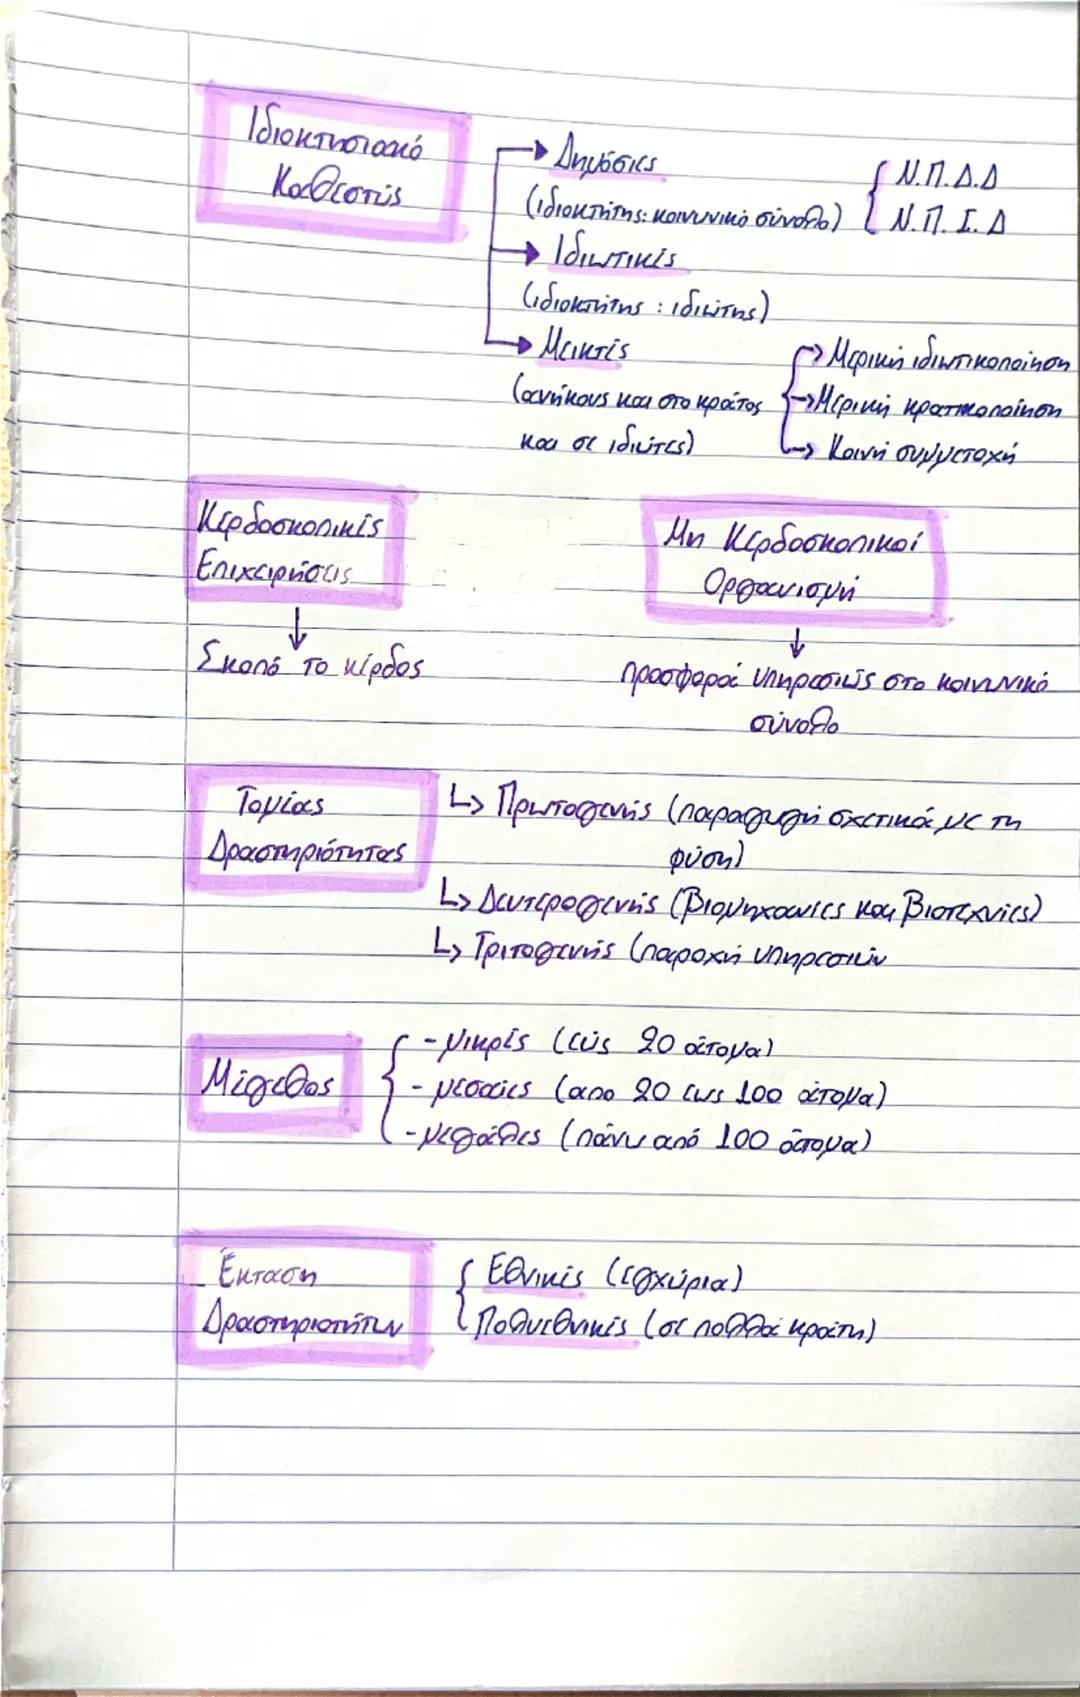 Ιδιοκτησιακό
Καθεστώς
Δημόσιες
(ιδιοκτήτης: κοινωνικό σύνολο)
Ν.Π.Δ.Δ
Ν.Π.Ι.Δ
Ιδιωτικές
(ιδιοκτήτης : ιδιώτης)
Μεικτές
(ανήκουν και στο κράτος
και σε ιδιώτες)
Μερική ιδιωτικοποίηση
Μερική κρατικοποίηση
Κοινή συμμετοχή
Κερδοσκοπικές
Επιχειρήσεις
Σκοπό το κέρδος
Μη Κερδοσκοπικοί
Οργανισμοί
προσφορά υπηρεσιών στο κοινωνικό
σύνολο
Τομέας
Δραστηριότητας
Πρωτογενής (παραγωγή σχετικά με τη
φύση)
Δευτερογενής (Βιομηχανίες και Βιοτεχνίες)
Τριτογενής (παροχή υπηρεσιών
Μέγεθος
- μικρές (έως 20 άτομα)
- μεσαίες (απο 20 εως 100 άτομα)
- μεγάλες (πάνω από 100 άτομα)
Έκταση
Δραστηριοτήτων
Εθνικές (εγχώρια)
Πολυεθνικές (σε πολλά κράτη)